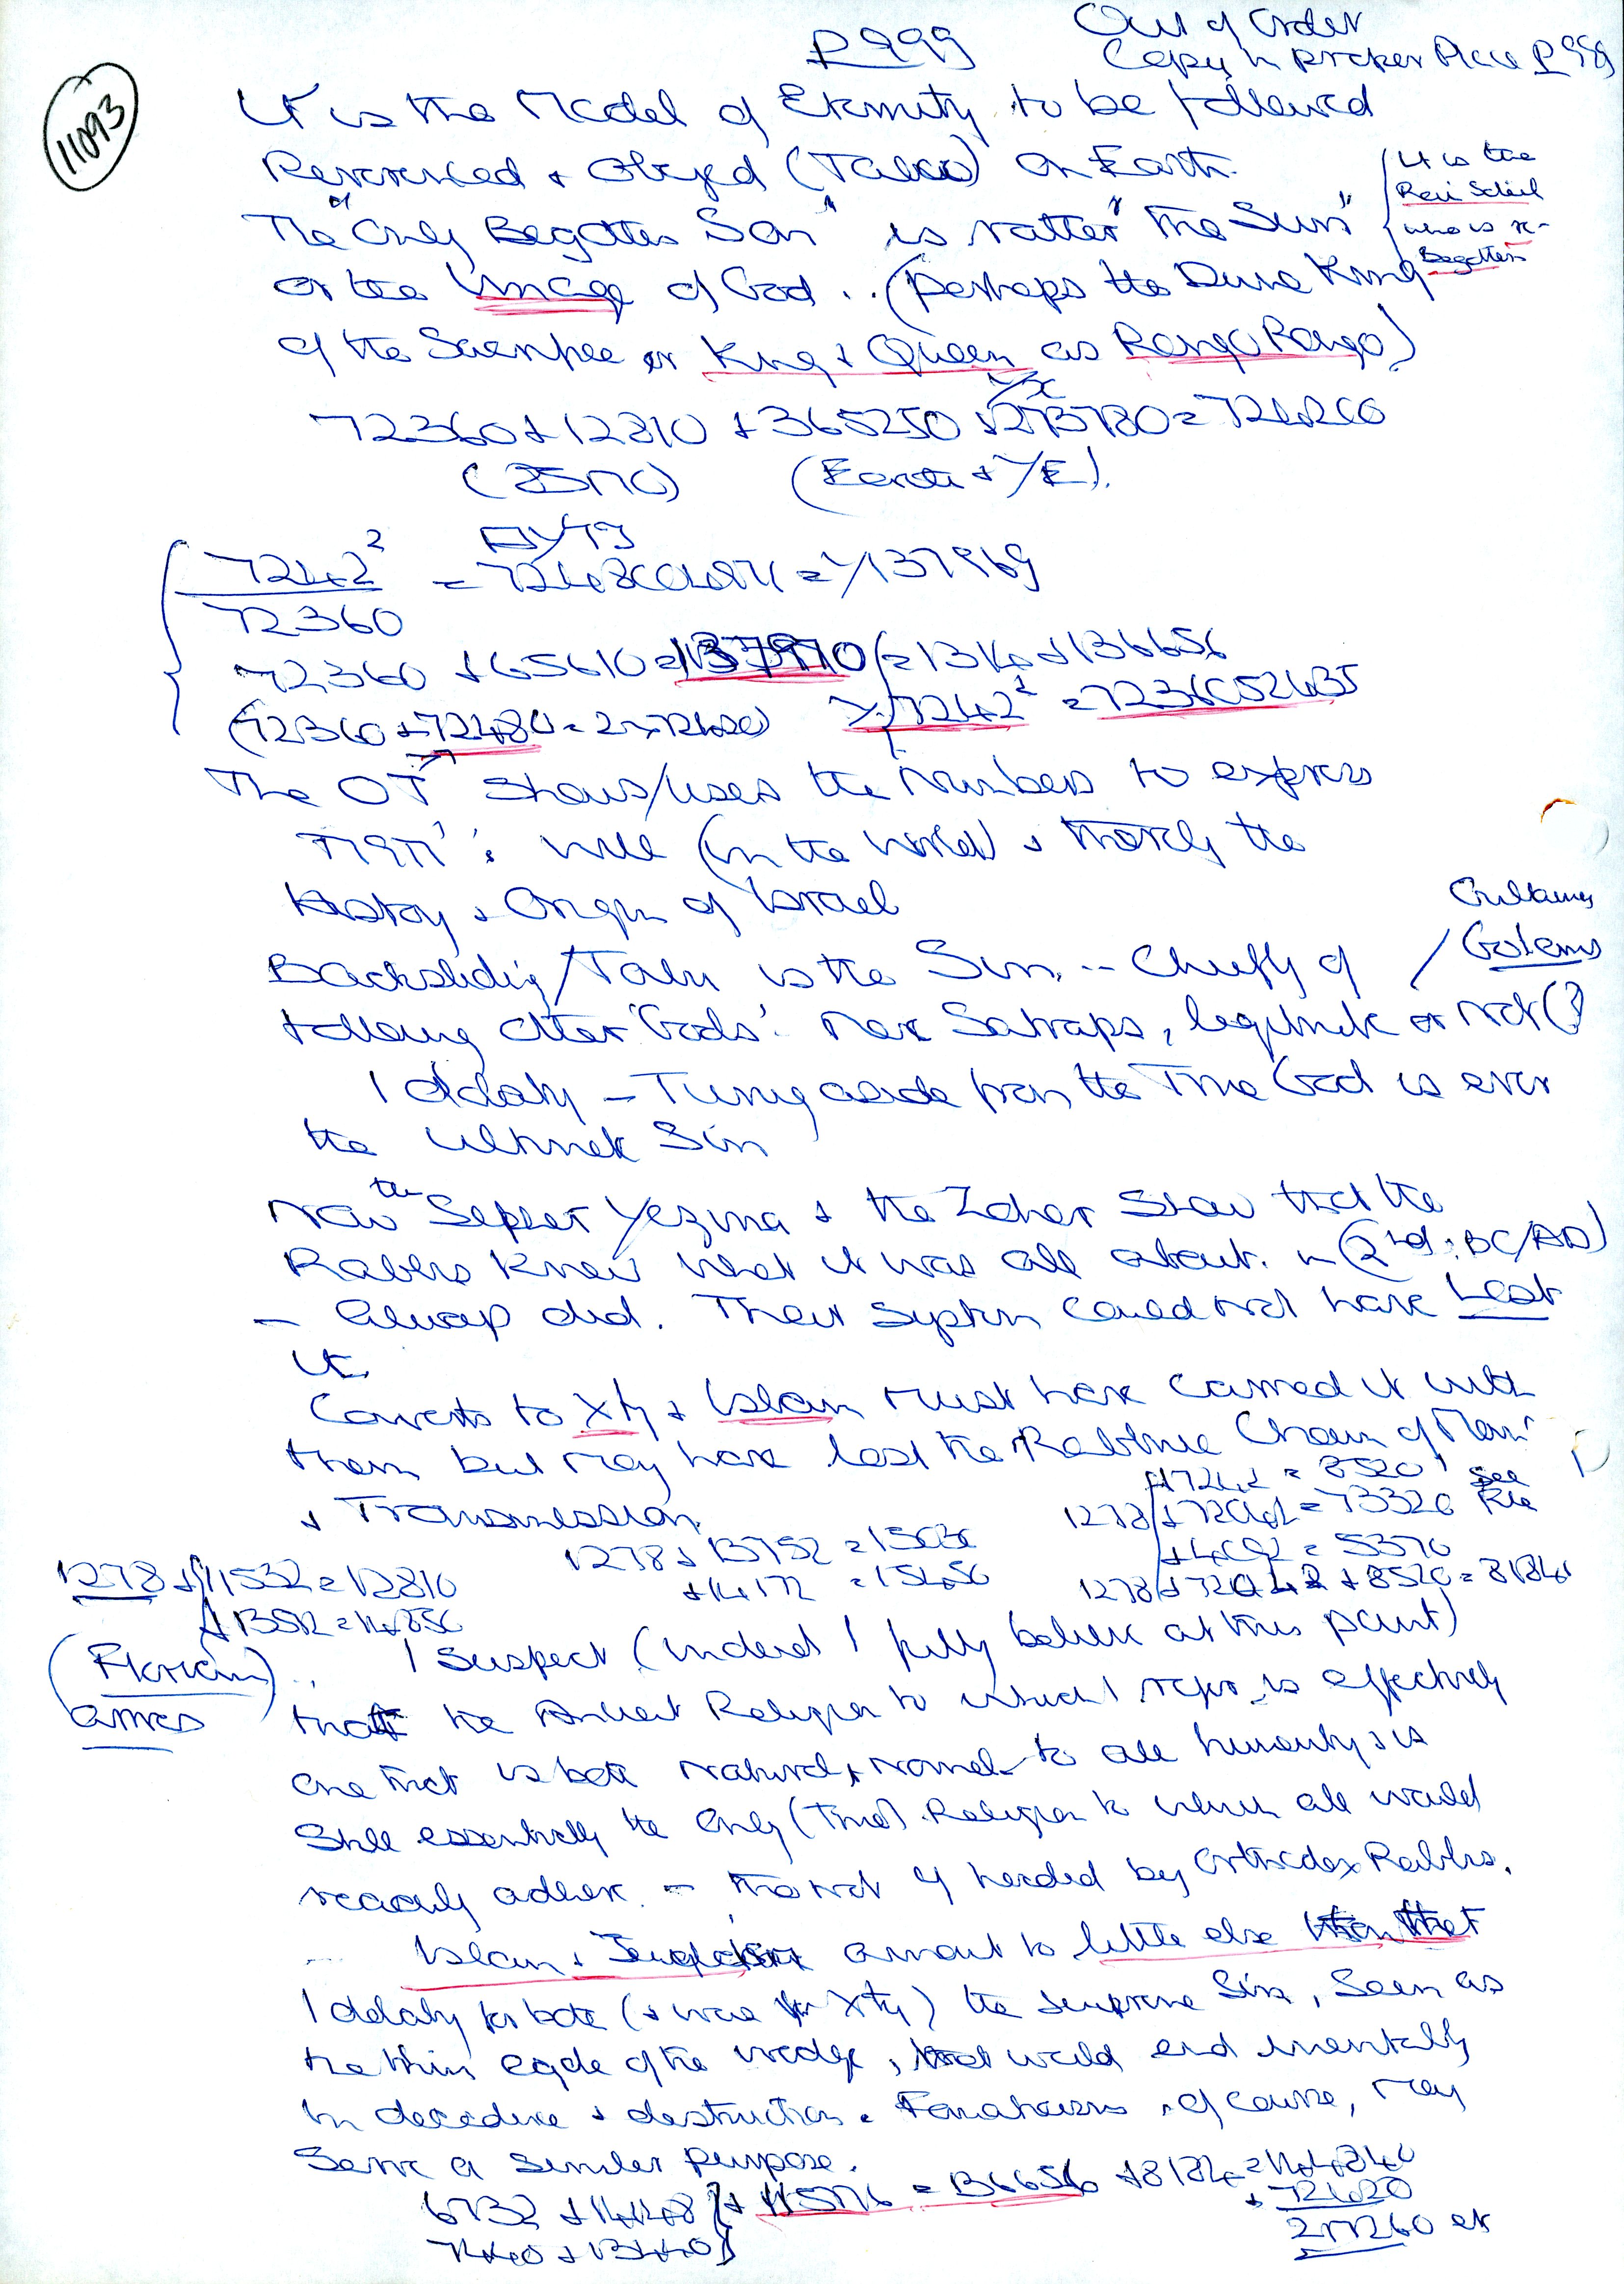 P 999
Out of Order
Copy in proper Place P 989
11093
It is the Model of Eternity to be followed
Reverenced + Obeyed (Taboo) on Earth.
The "Only Begotten Son" is rather "The Sun"
{ It is the
Rein Schiel
who is re-
Begotten
or the Image of God .. (perhaps the Divine King
of the Scientific or King + Queen as Rongo Rongo)
72360 + 12810 + 365250 + 273780 = 724200
(Earth + Y/E).
7242² / 72360
= Y137969
72360 + 65610 = 137970 (= 1314 + 136656
(72360 + 72480 = 2 x 72420)
7242² = 7236052435
The OT shows/uses the Numbers to express
will (in the World) & thereby the
history & Origin of Israel
Backsliding/Tabu is the Sin. -- Chiefly of
/ Golems
following after 'Gods'. Mere Satraps, legitimate or not (?)
Idolatry - Turning aside from the True God is ever
the ultimate Sin
Now the Sepher Yezira & the Zohar Show that the
Rabbis knew what it was all about. in (2nd: BC/AD)
- Always did. Their System could not have Lost
it.
Converts to Xty & Islam must have carried it with
them but may have lost the Rabbinic Chain of
& Transmission.
+ 7242 = 8520 See
1278 + 72042 = 73320
+ 4092 = 5370
1278 + 13752 = 15030
+ 14172 = 15450
1278 + 72042 + 8520 = 81840
1278 + 11532 = 12810
+ 13572 = 14850
I Suspect (indeed I fully believe at this point)
that the Ancient Religion to which I refer, is effectively
one that is both natural & normal to all humanity & is
Still essentially the Only (True) Religion to which all would
readily adhere. - tho not if headed by Orthodox Rabbis.
Islam & amount to little else than that
Idolatry for both (& was for Xty) the supreme Sin, Seen as
the thin egde of the wedge, that would end inevitably
in decadence & destruction. Fanaticism, of course, may
Serve a similar purpose.
6732 + 14448 } + 115776 = 136656 + 8184 = 144840
7440 + 13440 }
+ 72420
217260 etc